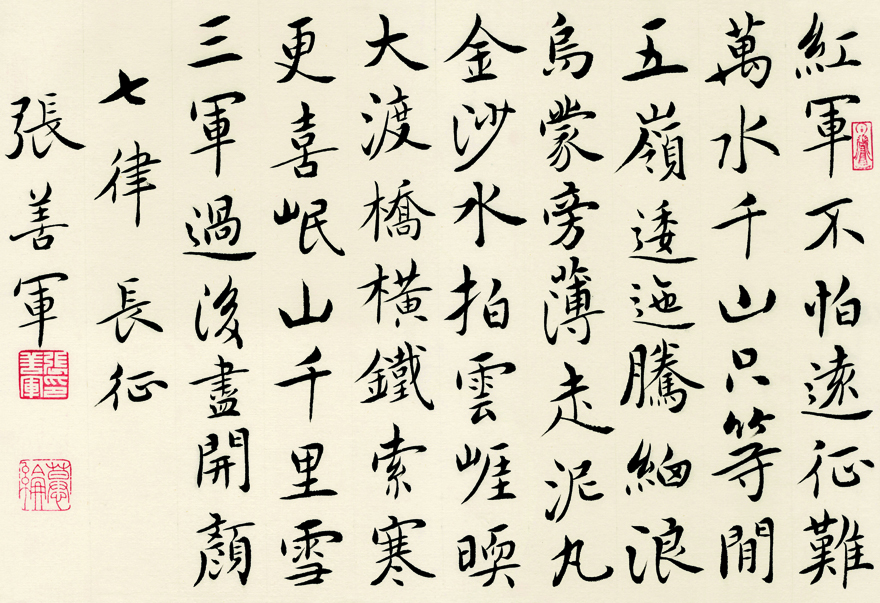 紅軍不怕遠征難
萬水千山只等閒
五嶺逶迤騰細浪
烏蒙旁薄走泥丸
金沙水拍雲崕暖
大渡橋橫鐵索寒
更喜岷山千里雪
三軍過後盡開顏
七律 長征
張善軍
張善軍印